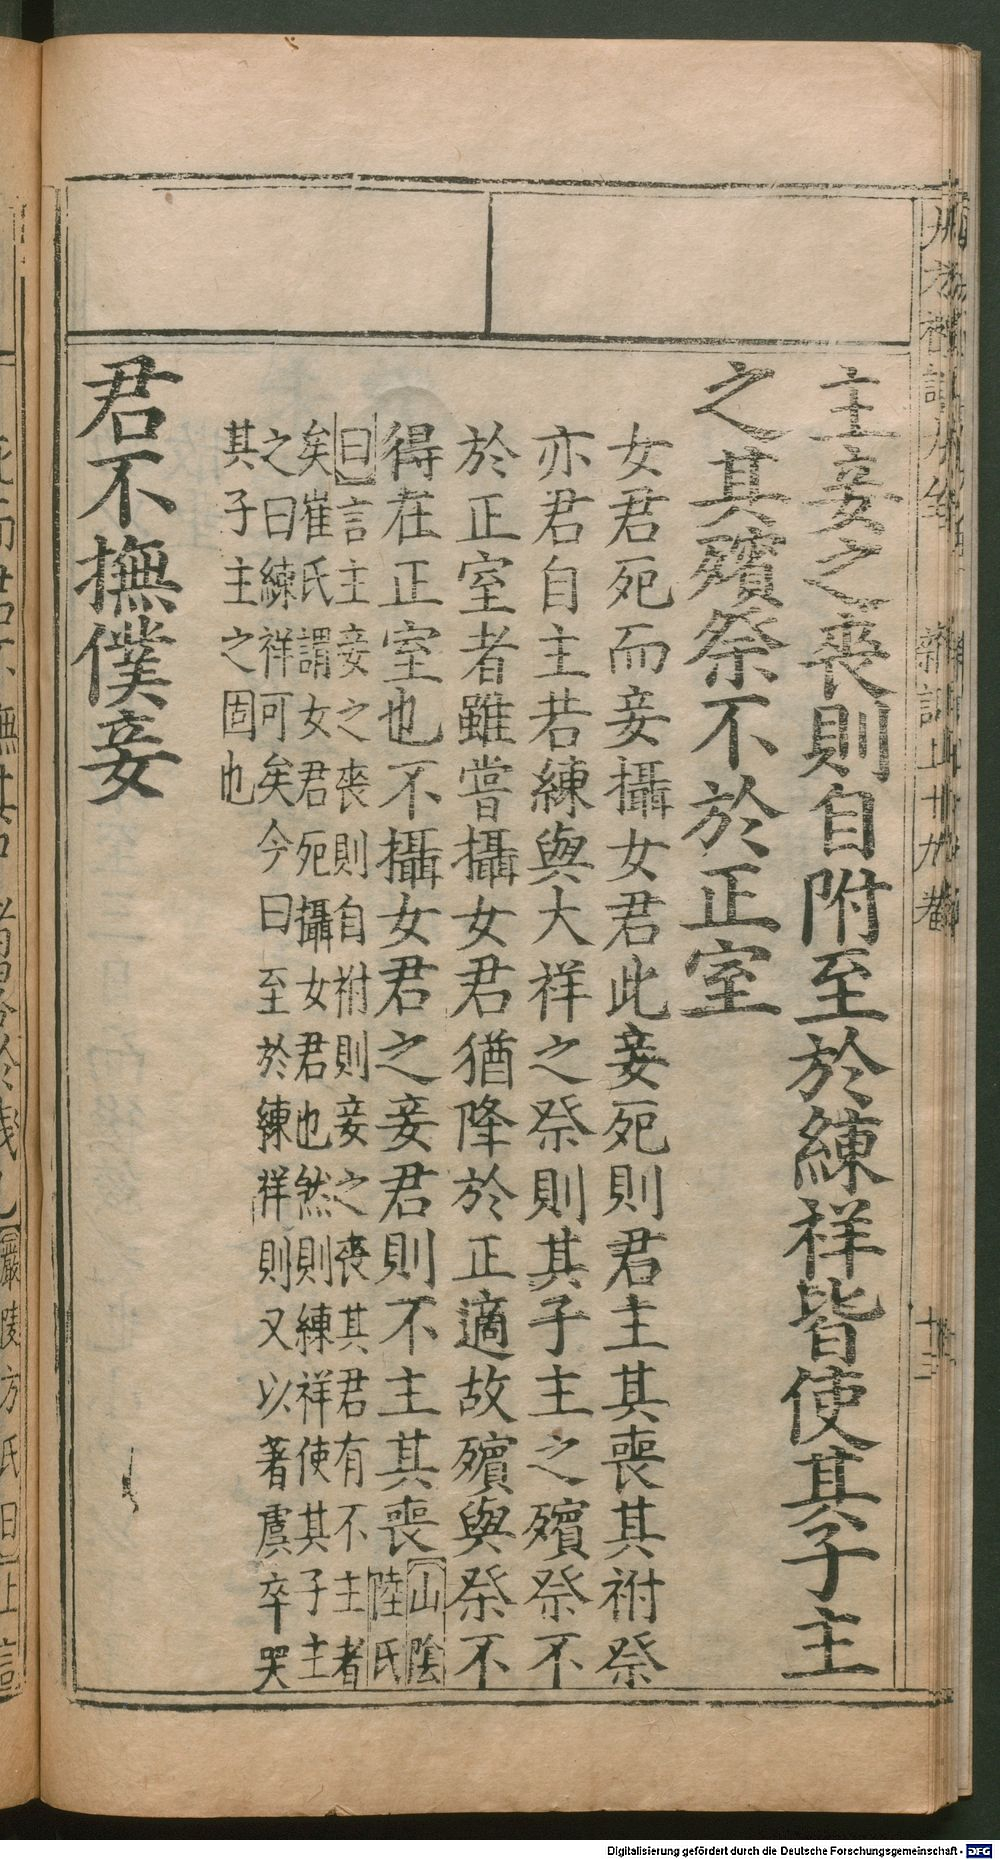 主妾之喪則自附至於練祥皆使其子主
之其殯祭不於正室
女君死而妾攝女君此妾死則君主其喪其祔祭
亦君自主若練與大祥之祭則其子主之殯祭不
於正室者雖嘗攝女君猶降於正適故殯與祭不
得在正室也不攝女君之妾君則不主其喪
山陰
陸氏
曰言主妾之喪則自祔則妾之喪其君有不主者
矣崔氏謂女君死攝女君也然則練祥使其子主
之曰練祥可矣今曰至於練祥則又以著虞卒哭
其子主之固也
君不撫僕妾
十三
Digitalisierung gefördert durch die Deutsche Forschungsgemeinschaft - DFG